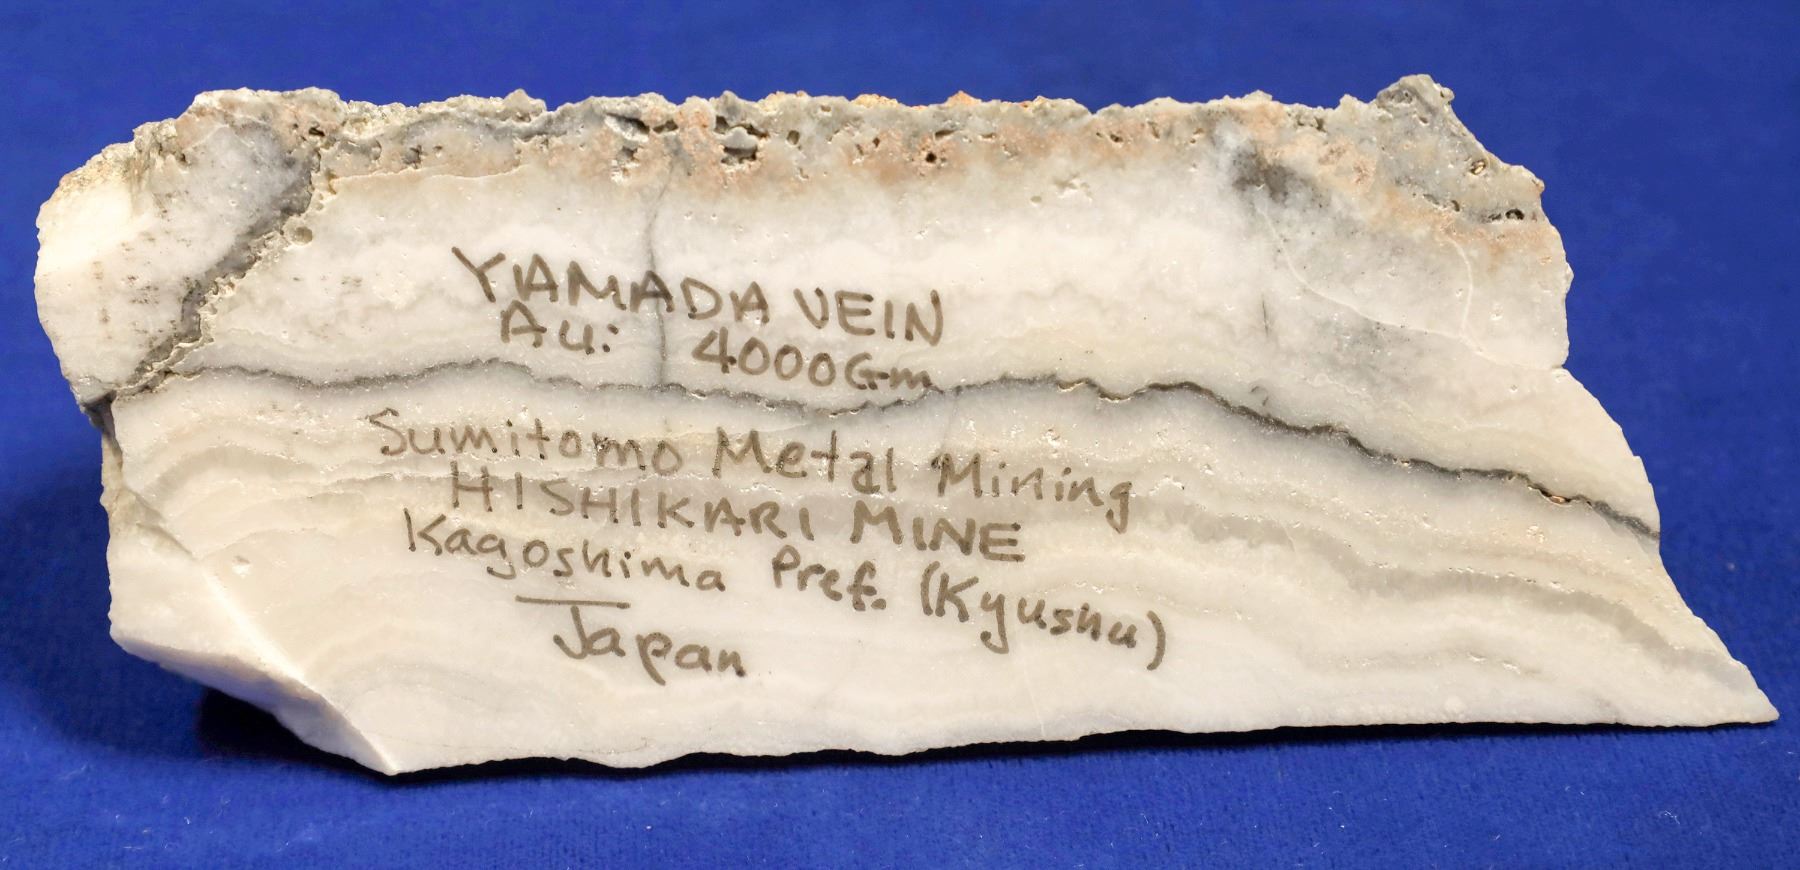 YAMADA VEIN
Au: 4000Gm
Sumitomo Metal Mining
HISHIKARI MINE
Kagoshima Pref. (Kyushu)
Japan